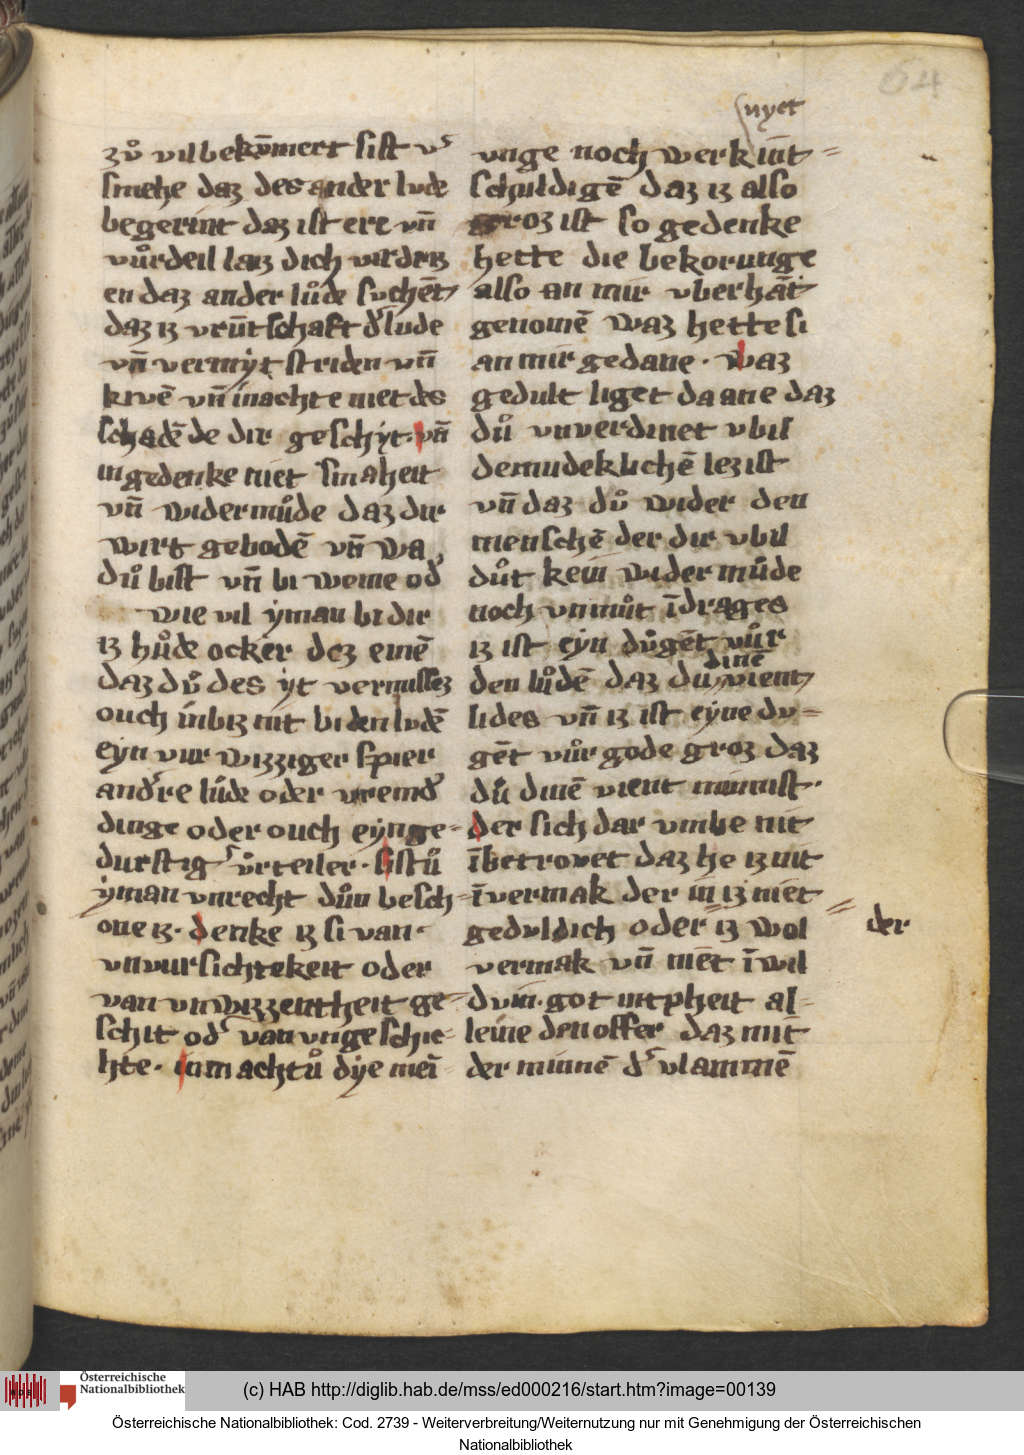 64
zuͦ vil bekūmert sist vͬ
smehe daz des ander lude
begerint daz ist ere vn̄
vuͦrdeil laz dich
en daz ander luͦde suchēt
daz iz vrūtschaft dͬ lude
vn̄ vermẏt striden vn̄
kivē vn̄ in achte niet des
schadē de dir geschẏt · vn̄
ingedenke niet smaheit
vn̄ widermuͦde daz dir
wirt gebodē vn̄ wa
duͦ bist vn̄ bi weme odͬ
wie vil ẏman bi dir
iz huͦde ocker dez einē
daz duͦ des ẏt vermissez
ouch inbiz nit bi den ludē
eyn vur wizziger spier
andͬre lude oder vremdͬ
dinge oder ouch eyn ge-
durstig vͦrteiler · sistuͦ
ẏman vnrecht duͦn besch-
one iz · denke iz si van
vnvursichtekeit oder
van vnwizzentheit ge-
schit odͬ van vngeschie-
hte · in machtuͦ dẏe meī-
nyet
vnge noch werk int-
schuldigē daz iz also
groz ist so gedenke
hette die bekorunge
also an mir vberhāt
genomē waz hette si
an mir gedane · waz
gedult liget da ane daz
duͦ vnverdinet vbil
demudeklichē lezist
vn̄ daz duͦ wider den
menschē der dir vbil
duͦt kein widermuͦde
noch vnmuͦt īdrages
iz ist eẏn duͦgēt vuͦr
dinē
den luͦdē daz du vient
lides vn̄ iz ist eẏne du-
gēt vuͦr gode groz daz
duͦ dinē vient minnist ·
der sich dar vmbe nit
ībetrovet daz he iz nit
īvermak der in iz niet
der
geduldich oder iz wol
vermak vn̄ niet īwil
dvin · got nitpheit al-
leine den offer daz nut
der minnē dͬ vlammē
Österreichische
Nationalbibliothek
(c) HAB http://diglib.hab.de/mss/ed000216/start.htm?image=00139
Österreichische Nationalbibliothek: Cod. 2739 - Weiterverbreitung/Weiternutzung nur mit Genehmigung der Österreichischen
Nationalbibliothek